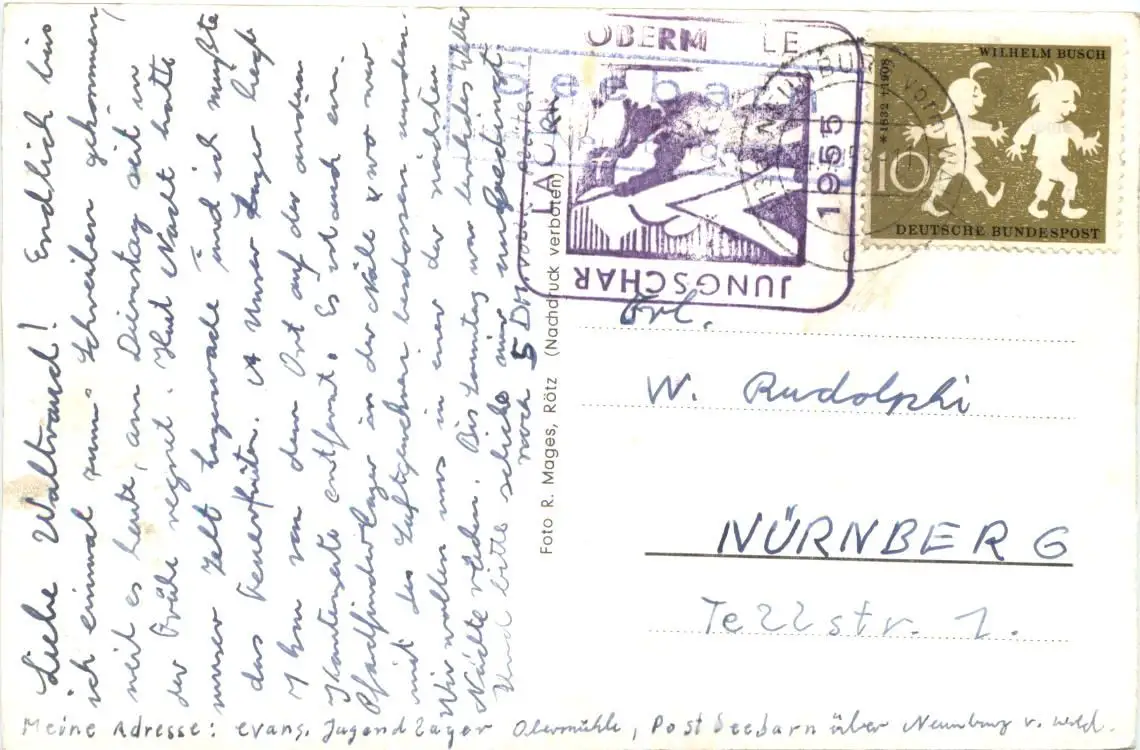 Liebe Waltraud! Endlich bin
ich einmal zum Schreiben gekommen,
weil es heute, am Dienstag seit in
der Frühe regnet. Heut Nacht hatte
unser Zelt Lagerwache und ich mußte
das Feuer hüten. Unser Lager liegt
1 km von dem Ort auf der andern
Kartenseite entfernt. Es ist auch ein
Pfadfinderlager in der Nähe, wo wir
mit des Luftgewehrer beschossen wurden.
Wir wollen uns in einer der nächsten
Nächte rächen. Bis Sonntag war herrliches Wetter
Und bitte schicke mir unbedingt
noch 5 Dosen
Foto R. Mages, Rötz (Nachdruck verboten)
OBERM LE
Seebarn
LAGER
1955
JUNGSCHAR
NEUNBURG vorm WALD
WILHELM BUSCH
*1832 †1908
10
DEUTSCHE BUNDESPOST
Frl.
W. Rudolphi
NÜRNBERG
Tellstr. 1.
Meine Adresse: evang. Jugendlager Obermühle, Post Seebarn über Neunburg v. Wald.